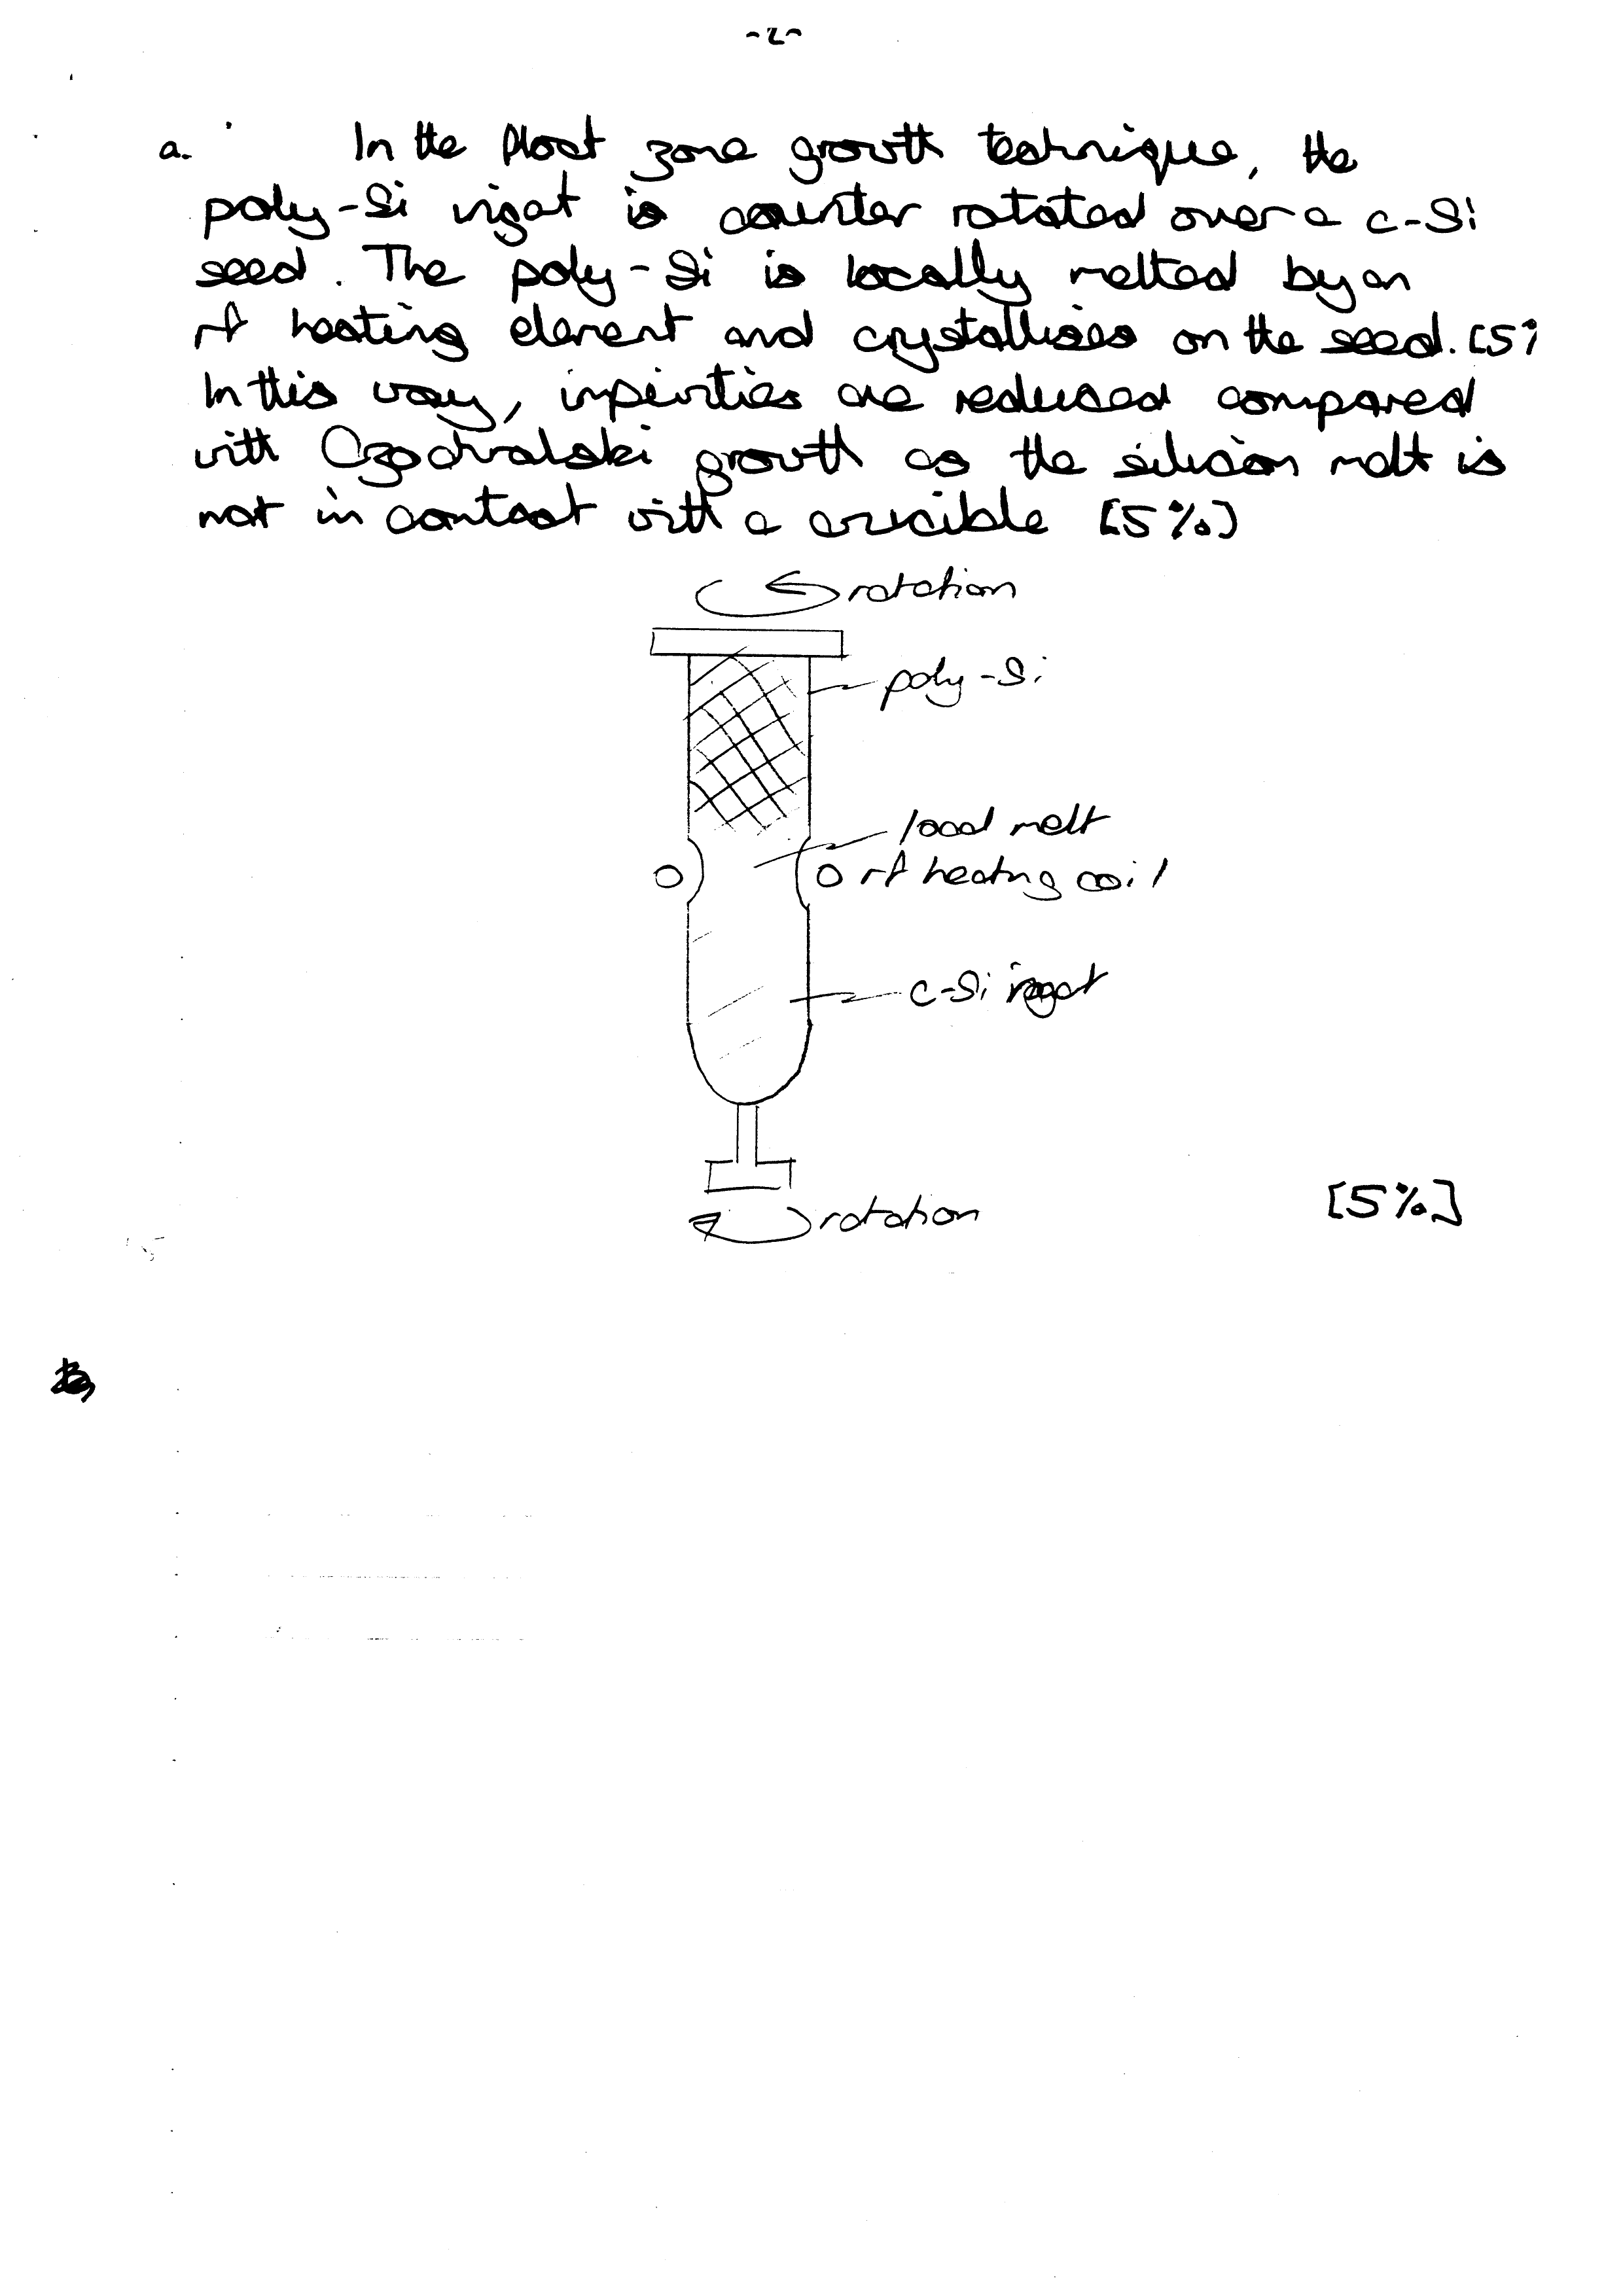 -2-
a. In the float zone growth technique, the
poly-Si ingot is counter rotated over a c-Si
seed. The poly-Si is locally melted by an
rf heating element and crystallises on the seed. [5%
In this way, impurities are reduced compared
with Czochralski growth as the silicon melt is
not in contact with a crucible [5%]
rotation
poly-Si
local melt
rf heating coil
c-Si ingot
rotation
[5%]